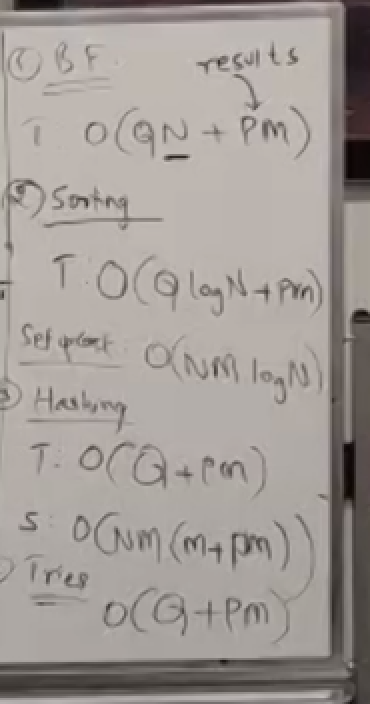 ① BF.
results
T O(QN + PM)
② Sorting
T: O(Q logN + PM)
Set up cost: O(NM logN)
③ Hashing
T: O(Q + PM)
S: O(NM(M + PM))
Tries
O(Q + PM)